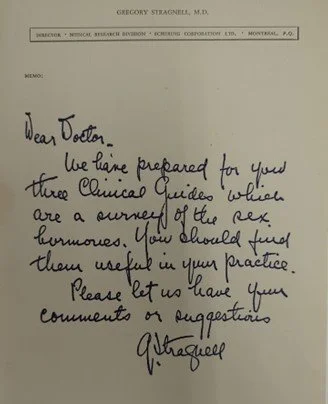 GREGORY STRAGNELL, M.D.
DIRECTOR • MEDICAL RESEARCH DIVISION • SCHERING CORPORATION LTD. • MONTREAL, P.Q.
MEMO:
Dear Doctor-
We have prepared for you
three Clinical Guides which
are a survey of the sex
hormones. You should find
them useful in your practice.
Please let us have your
comments or suggestions
G. Stragnell